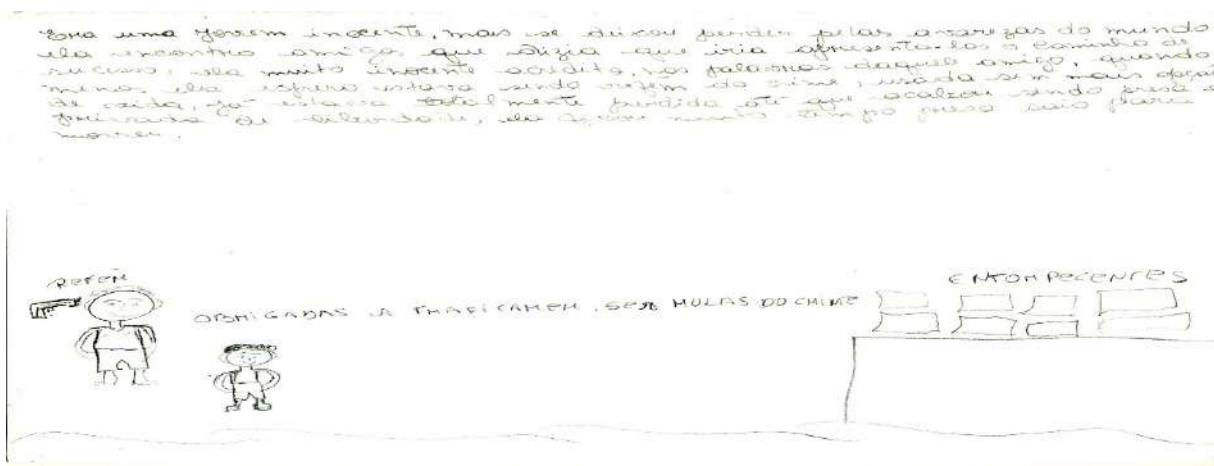 Era uma jovem inocente, mais se deixou perder pelas avarezas do mundo
ela encontro amigos que dizia que iria apresenta-las o caminho de
sucesso, ela muito inocente acredito, nas palavras daquele amigo, quando
menos ela espero estava sendo refém do crime, usada sem mais opção
de saida, já estava totalmente perdida até que acabou sendo presa e
privada de liberdade, ela ficou muito tempo presa saio para
morrer.
REFÉM
ENTORPECENTES
OBRIGADAS A TRAFICAREM, SER MULAS DO CRIME